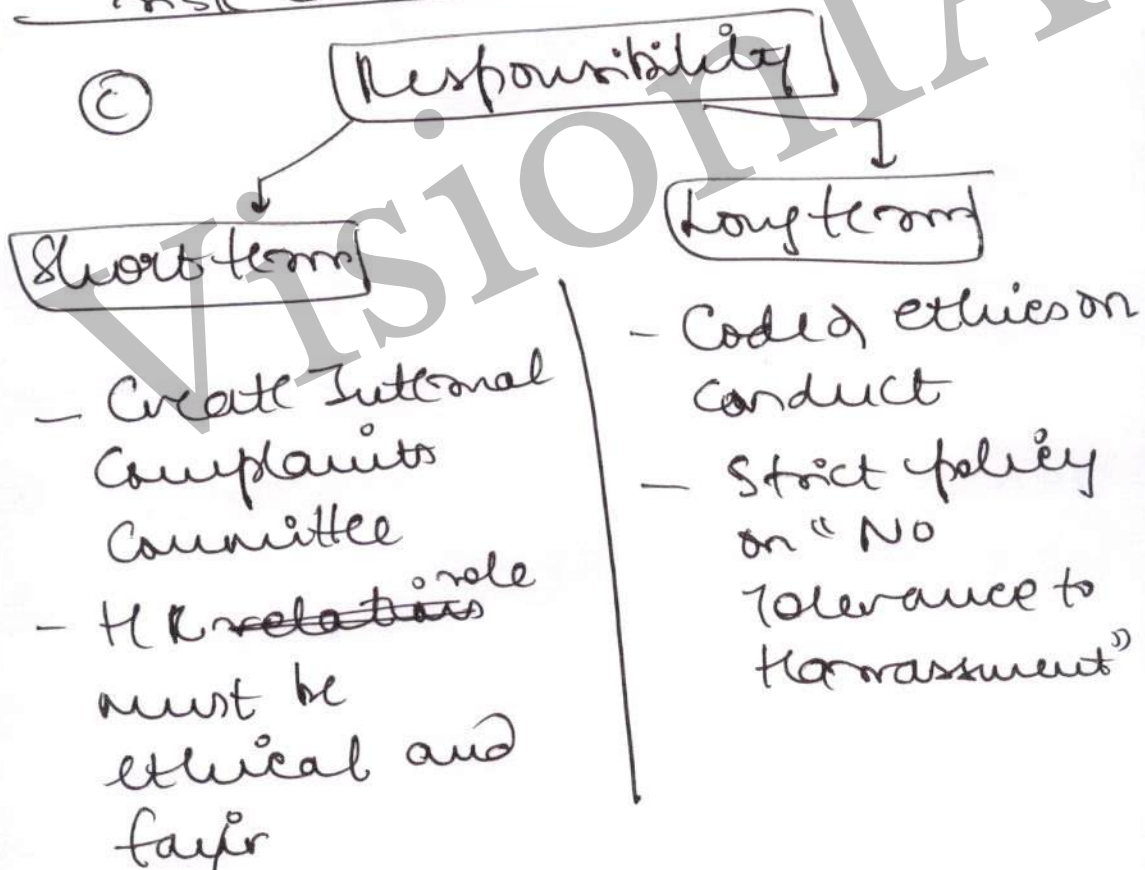 ©
Responsibility
Short term
- Create Internal
Complaints
Committee
- HR relations role
must be
ethical and
fair
Long term
- Code of ethics on
conduct
- Strict policy
on "No
Tolerance to
Harrassment"
VisionIA